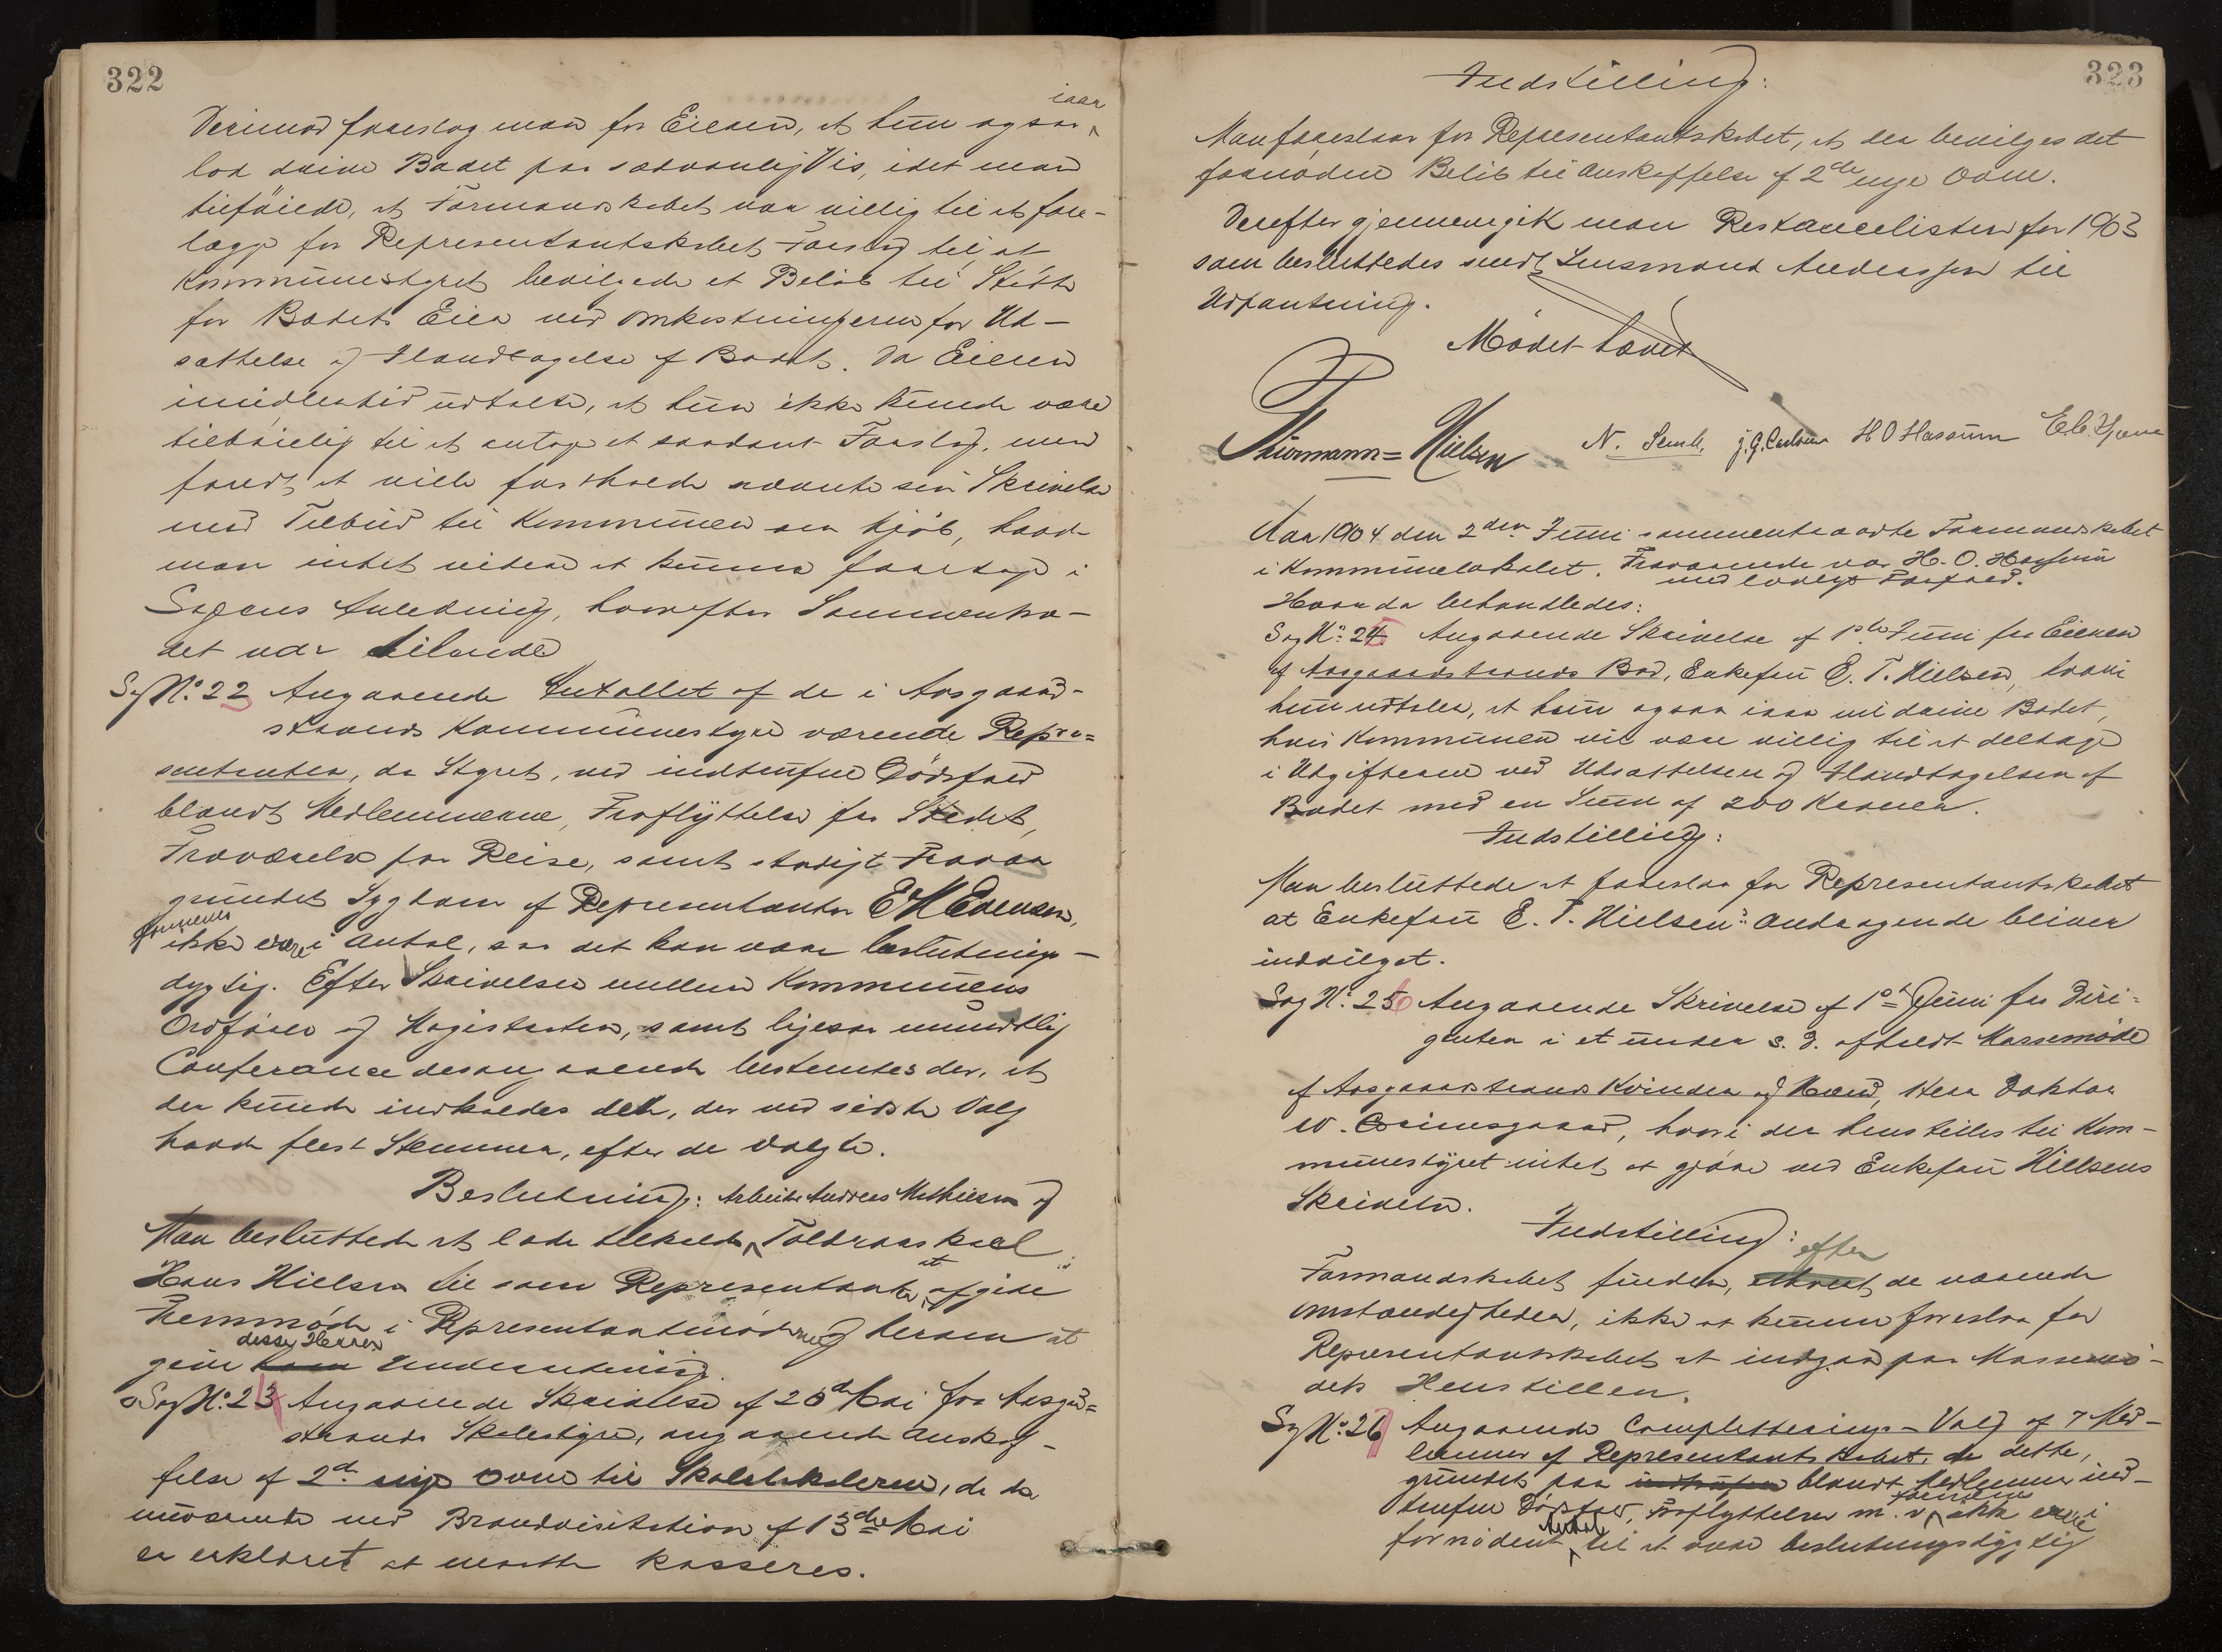 322
iaar
Derimod foreslog man for Eieren, at hun ogsaa
lod drive Badet paa sædvanlig Vis, idet man
tilføiede, at Formandskabet var villig til at fore-
lægge for Representantskabet Forslag til at
Kommunestyret bevilgede et Beløb til Støtte
for Badets Eier ved Omkostningerne for Ud-
sættelse og Ilandtagelse af Badet. Da Eieren
imidlertid udtalte, at hun ikke kunde være
tilbøielig til at antage et saadant Forslag, men
fandt at ville fastholde nævnte sin Skrivelse
med Tilbud til Kommunen om Kjøb, havde
man intet videre at kunne foretage i
Sagens Anledning, hvorefter Sammentræ-
det var tilende
Sag No. 23 Angaaende Antallet af de i Aasgaard-
strands Kommunestyre værende Repræ=
sentanter, da Styret, ved indtrufne Dødsfald
blandt Medlemmerne, Fraflyttelse fra Stedet,
Fraværelse paa Reise, samt stadigt Fravær
grundet Sygdom af Representanten E M Evensen,
formenes
ikke være i Antal, saa det kan være beslutnings-
dygtig. Efter Skrivelser mellem Kommunens
Ordfører og Magistraten, samt ligesaa mundtlig
Conferance desangaaende bestemtes der, at
der kunde indkaldes dem, der ved sidste Valg
havde flest Stemmer, efter de valgte.
Beslutning: Arbeider Andreas Mathisen og
Man besluttede at lade tilkalde Toldroerskarl
Hans Nielsen til som Representanter at afgive
Fremmøde i Representantmøderne og herom at
disse Herrer
give ham Underretning.
Sag No. 24 Angaaende Skrivelse af 26de Mai fra Aasgd=
strands Skolestyre, angaaende Anskaf-
felse af 2de nye Ovne til Skolelokalerne, de da
nuværende ved Brandvisitation af 13de Mai
er erklæret at maatte kasseres.
323
Indstilling:
Man foreslaar for Representantskabet, at der bevilges det
fornødne Beløb til Anskaffelse af 2de nye Ovne.
Derefter gjennemgik man Restancelisten for 1903
som besluttedes sendt Lensmand Andreassen til
Udpantning.
Mødet hævet
Thurmann=Nielsen N. Semb, J. G. Carlsen H O Hassum E. C. Hjorne
Aar 1904 den 2den Juni sammentraadte Formandskabet
i Kommunelokalet. Fraværende var H. O. Hassum
med lovligt Forfald.
Hvor da behandledes:
Sag No. 25 Angaaende Skrivelse af 1ste Juni fra Eieren
af Aasgaardstrands Bad, Enkefru E. T. Nielsen, hvori
hun udtaler, at hun ogsaa iaar vil drive Badet,
hvis Kommunen vil være villig til at deltage
i Udgifterne ved Udsættelsen og Ilandtagelsen af
Badet med en Sum af 200 Kroner.
Indstilling:
Man besluttede at foreslaa for Representantskabet
at Enkefru E. T. Nielsens Andragende bliver
indvilget.
Sag No. 26 Angaaende Skrivelse af 1ste Juni fra Diri-
genten i et under s. D. afholdt Massemøde
af Aasgaardstrands Kvinder og Mænd, Herr Doktor
W. Grimsgaard, hvori der henstilles til Kom-
munestyret intet at gjøre ved Enkefru Nielsens
Skrivelse.
Indstilling:
efter
Formandskabet finder, de værende
Omstændigheder, ikke at kunne foreslaa for
Representantskabet at indgaa paa Massemø-
dets Henstillen.
Sag No. 27 Angaaende Completterings-Valg af 7 Med-
lemmer af Representantskabet, da dette,
grundet paa indtrufne blandt Medlemmer ind-
trufne Dødsfald, Fraflyttelser m. v. formenes ikke være i
fornødent Antal til at være beslutningsdygtig